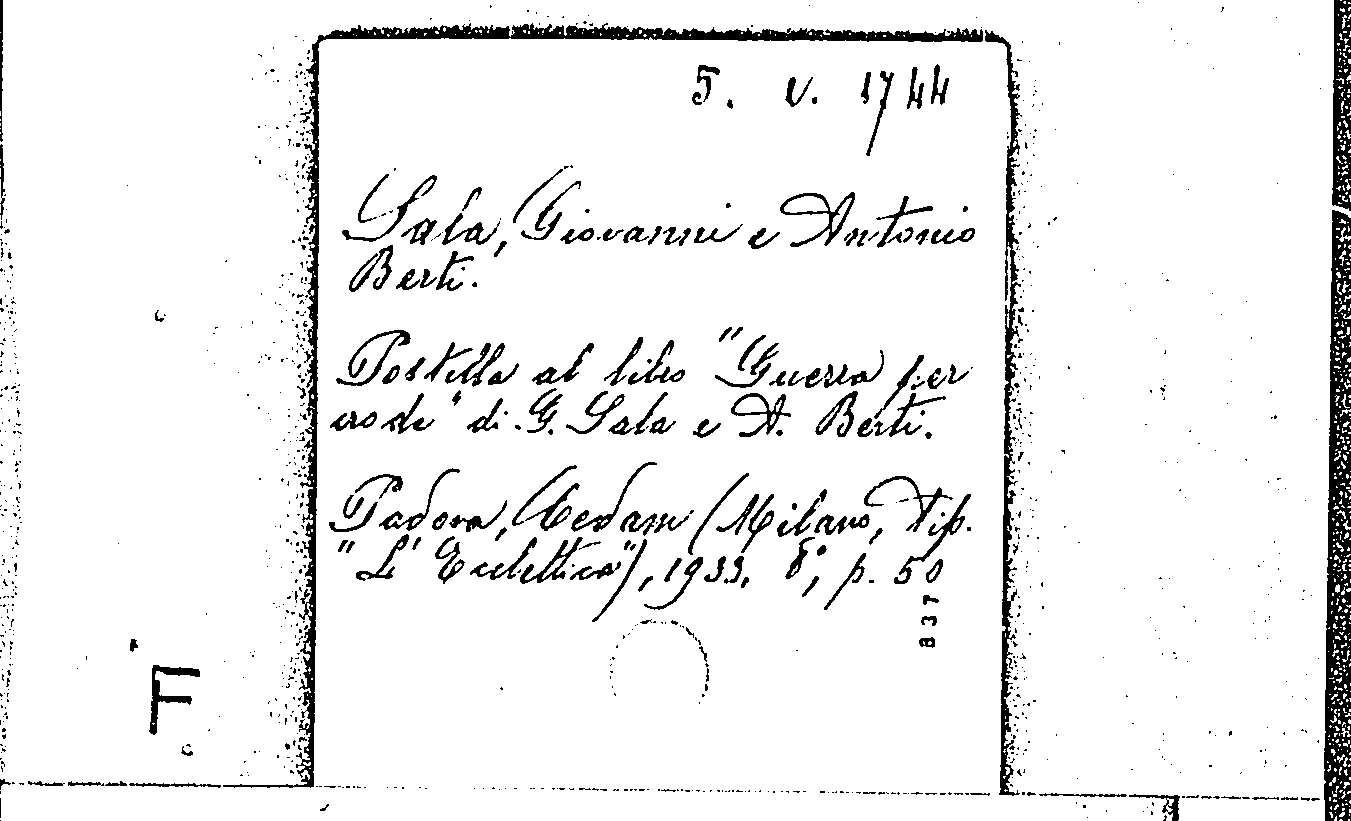 5. V. 1744
Sala, Giovanni e Antonio
Berti.
Postilla al libro "Guerra per
crode" di G. Sala e A. Berti.
Padova, Cedam (Milano, Tip.
"L'Eclettica"), 1933, 8°, p. 50
837
F